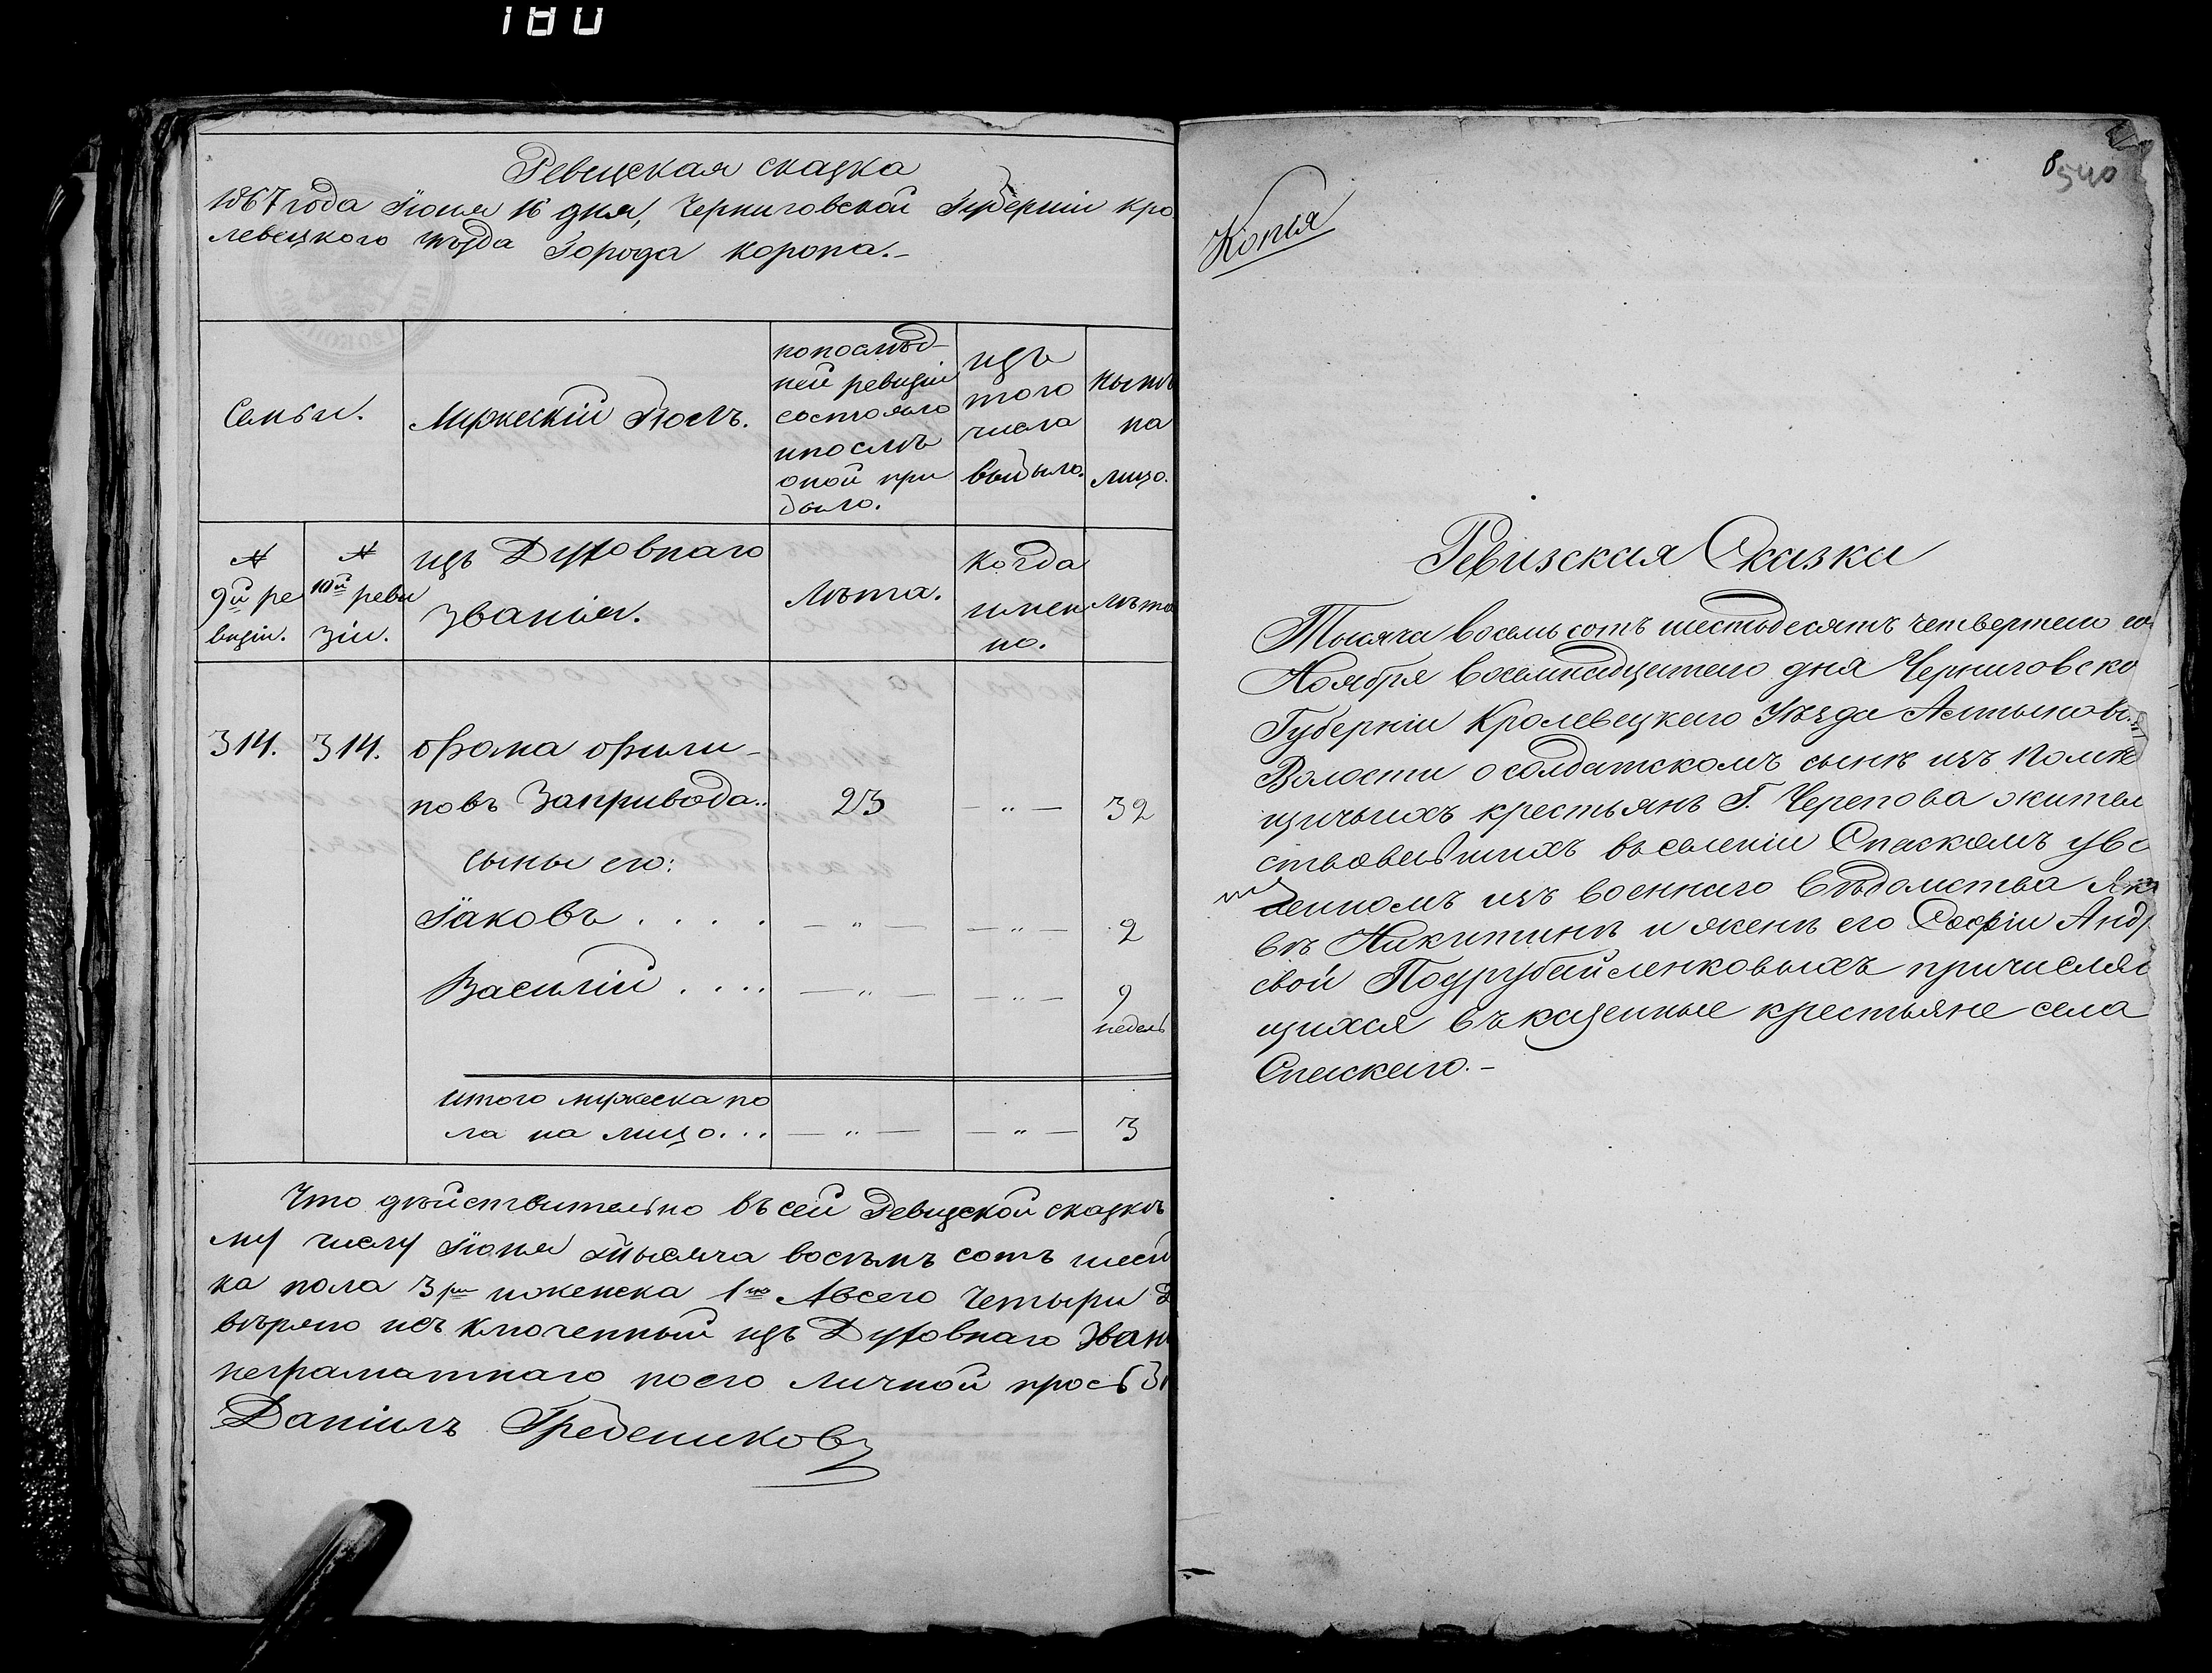 180
Ревизская сказка
1867 года Іюня 16 дня, Черниговской Губерніи кро
левецкого уѣзда Города Коропа.-
Семьи.
Мужескій Полъ.
попослѣд-
ней ревизіи
состояло
ипослѣ
оной при
было.
изъ
того
числа
выбыло.
нынѣ
на
лицо.
№
9й ре
визіи.
№
10й реви
зіи.
изъ Духовнаго
званія.
Лѣта.
Когда
имен
но.
Лѣта
314. 314. Фома Фили-
повъ Запривода.. 23 — „ — 32
сыны его:
Іаковъ . . . . — „ — — „ — 2
Василій . . . . — „ — — „ — 9
недель
итого мужеска по
ла на лицо... — „ — — „ — 3
Что дѣйствительно въ сей Ревизской сказкѣ
му числу Іюня тысяча восемъ сотъ шест
ка пола 3 ри иженска 1 на Авсего Четыри
вѣряю исъключенный изъ Духовнаго Зван
неграматнаго поего личной прось
Даніилъ Гребениковъ
8
540
Копія
Ревизская Сказка
Тысяча восемь сотъ шестьдесятъ четвертого го
Ноября восемнадцатого дня Черниговско
Губерніи Кролевецкаго Уѣзда Алтынов
Волости о солдатскомъ сынѣ изъ помѣ
щичьихъ крестьянъ Г. Черепова жител
ствовавшихъ въ селеніи Спаскомъ ув
ленномъ изъ военнаго вѣдомства Як
вѣ Никитинѣ и женѣ его Софіи Анд
свой причисля
щихся въ казенные крестьяне села
Спаскаго.-